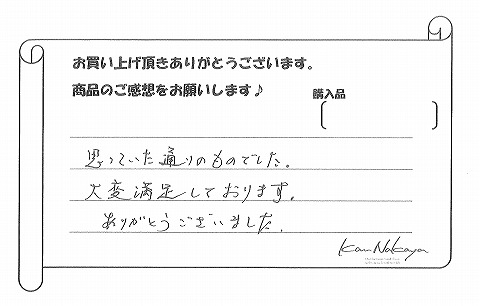 お買い上げ頂きありがとうございます。
商品のご感想をお願いします♪
購入品
思っていた通りのものでした。
大変満足しております。
ありがとうございました。
Kan Nakaya